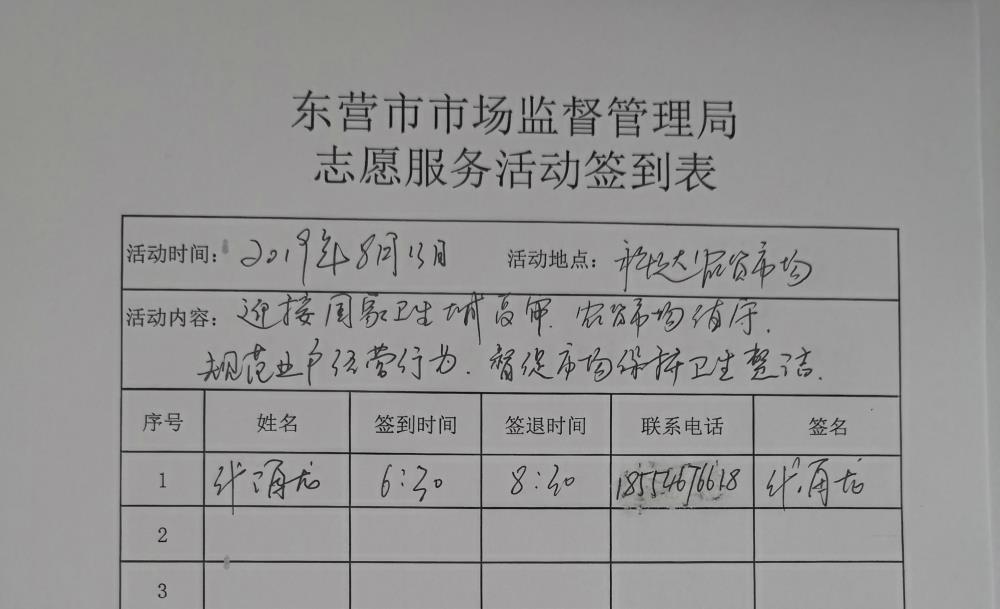 东营市市场监督管理局
志愿服务活动签到表
活动时间: 2019年8月13日 活动地点: 农贸市场
活动内容: 迎接国家卫生城复审、农贸市场值守、
规范业户经营行为、督促市场保持卫生整洁.
序号 姓名 签到时间 签退时间 联系电话 签名
1 6:30 8:30 18554676618
2
3